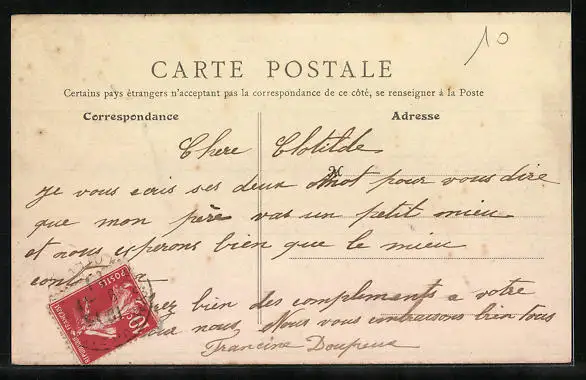 10
CARTE POSTALE
Certains pays étrangers n'acceptant pas la correspondance de ce côté, se renseigner à la Poste
Correspondance Adresse
Chere Clotilde
Je vous ecris ses deux mot pour vous dire
que mon père vas un petit mieu
et nous esperons bien que le mieu
bien des complements a votre
nous, Nous vous embrasons bien tous
Francine
POSTES
10